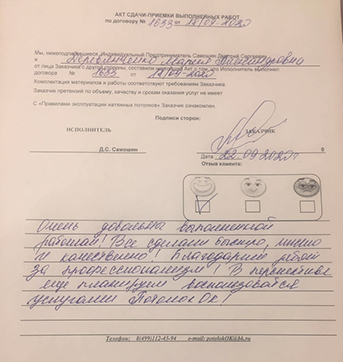 АКТ СДАЧИ-ПРИЕМКИ ВЫПОЛНЕННЫХ РАБОТ
по договору № 1633 от 18.09.2020
Мы, нижеподписавшиеся, Индивидуальный Предприниматель Самошин Дмитрий Сергеевич
и Мария Александровна
от лица Заказчика с другой стороны, составили настоящий Акт о том, что Исполнитель выполнил
договора № 1633 от
Комплектация материалов и работы соответствуют требованиям Заказчика.
Заказчик претензий по объему, качеству и срокам оказания услуг не имеет
С «Правилами эксплуатации натяжных потолков» Заказчик ознакомлен.
Подписи сторон:
ИСПОЛНИТЕЛЬ ЗАКАЗЧИК
Д.С. Самошин
Дата 22.09.2020г
Отзыв клиента:
Очень довольна выполненной
работой! Все сделали быстро, чисто
и качественно! Благодарим ребят
за профессионализм! В перспективе
еще планируем воспользоваться
услугами Потолок Ок!
Телефон: 8(499)112-43-94 e-mail: potolokOK@bk.ru